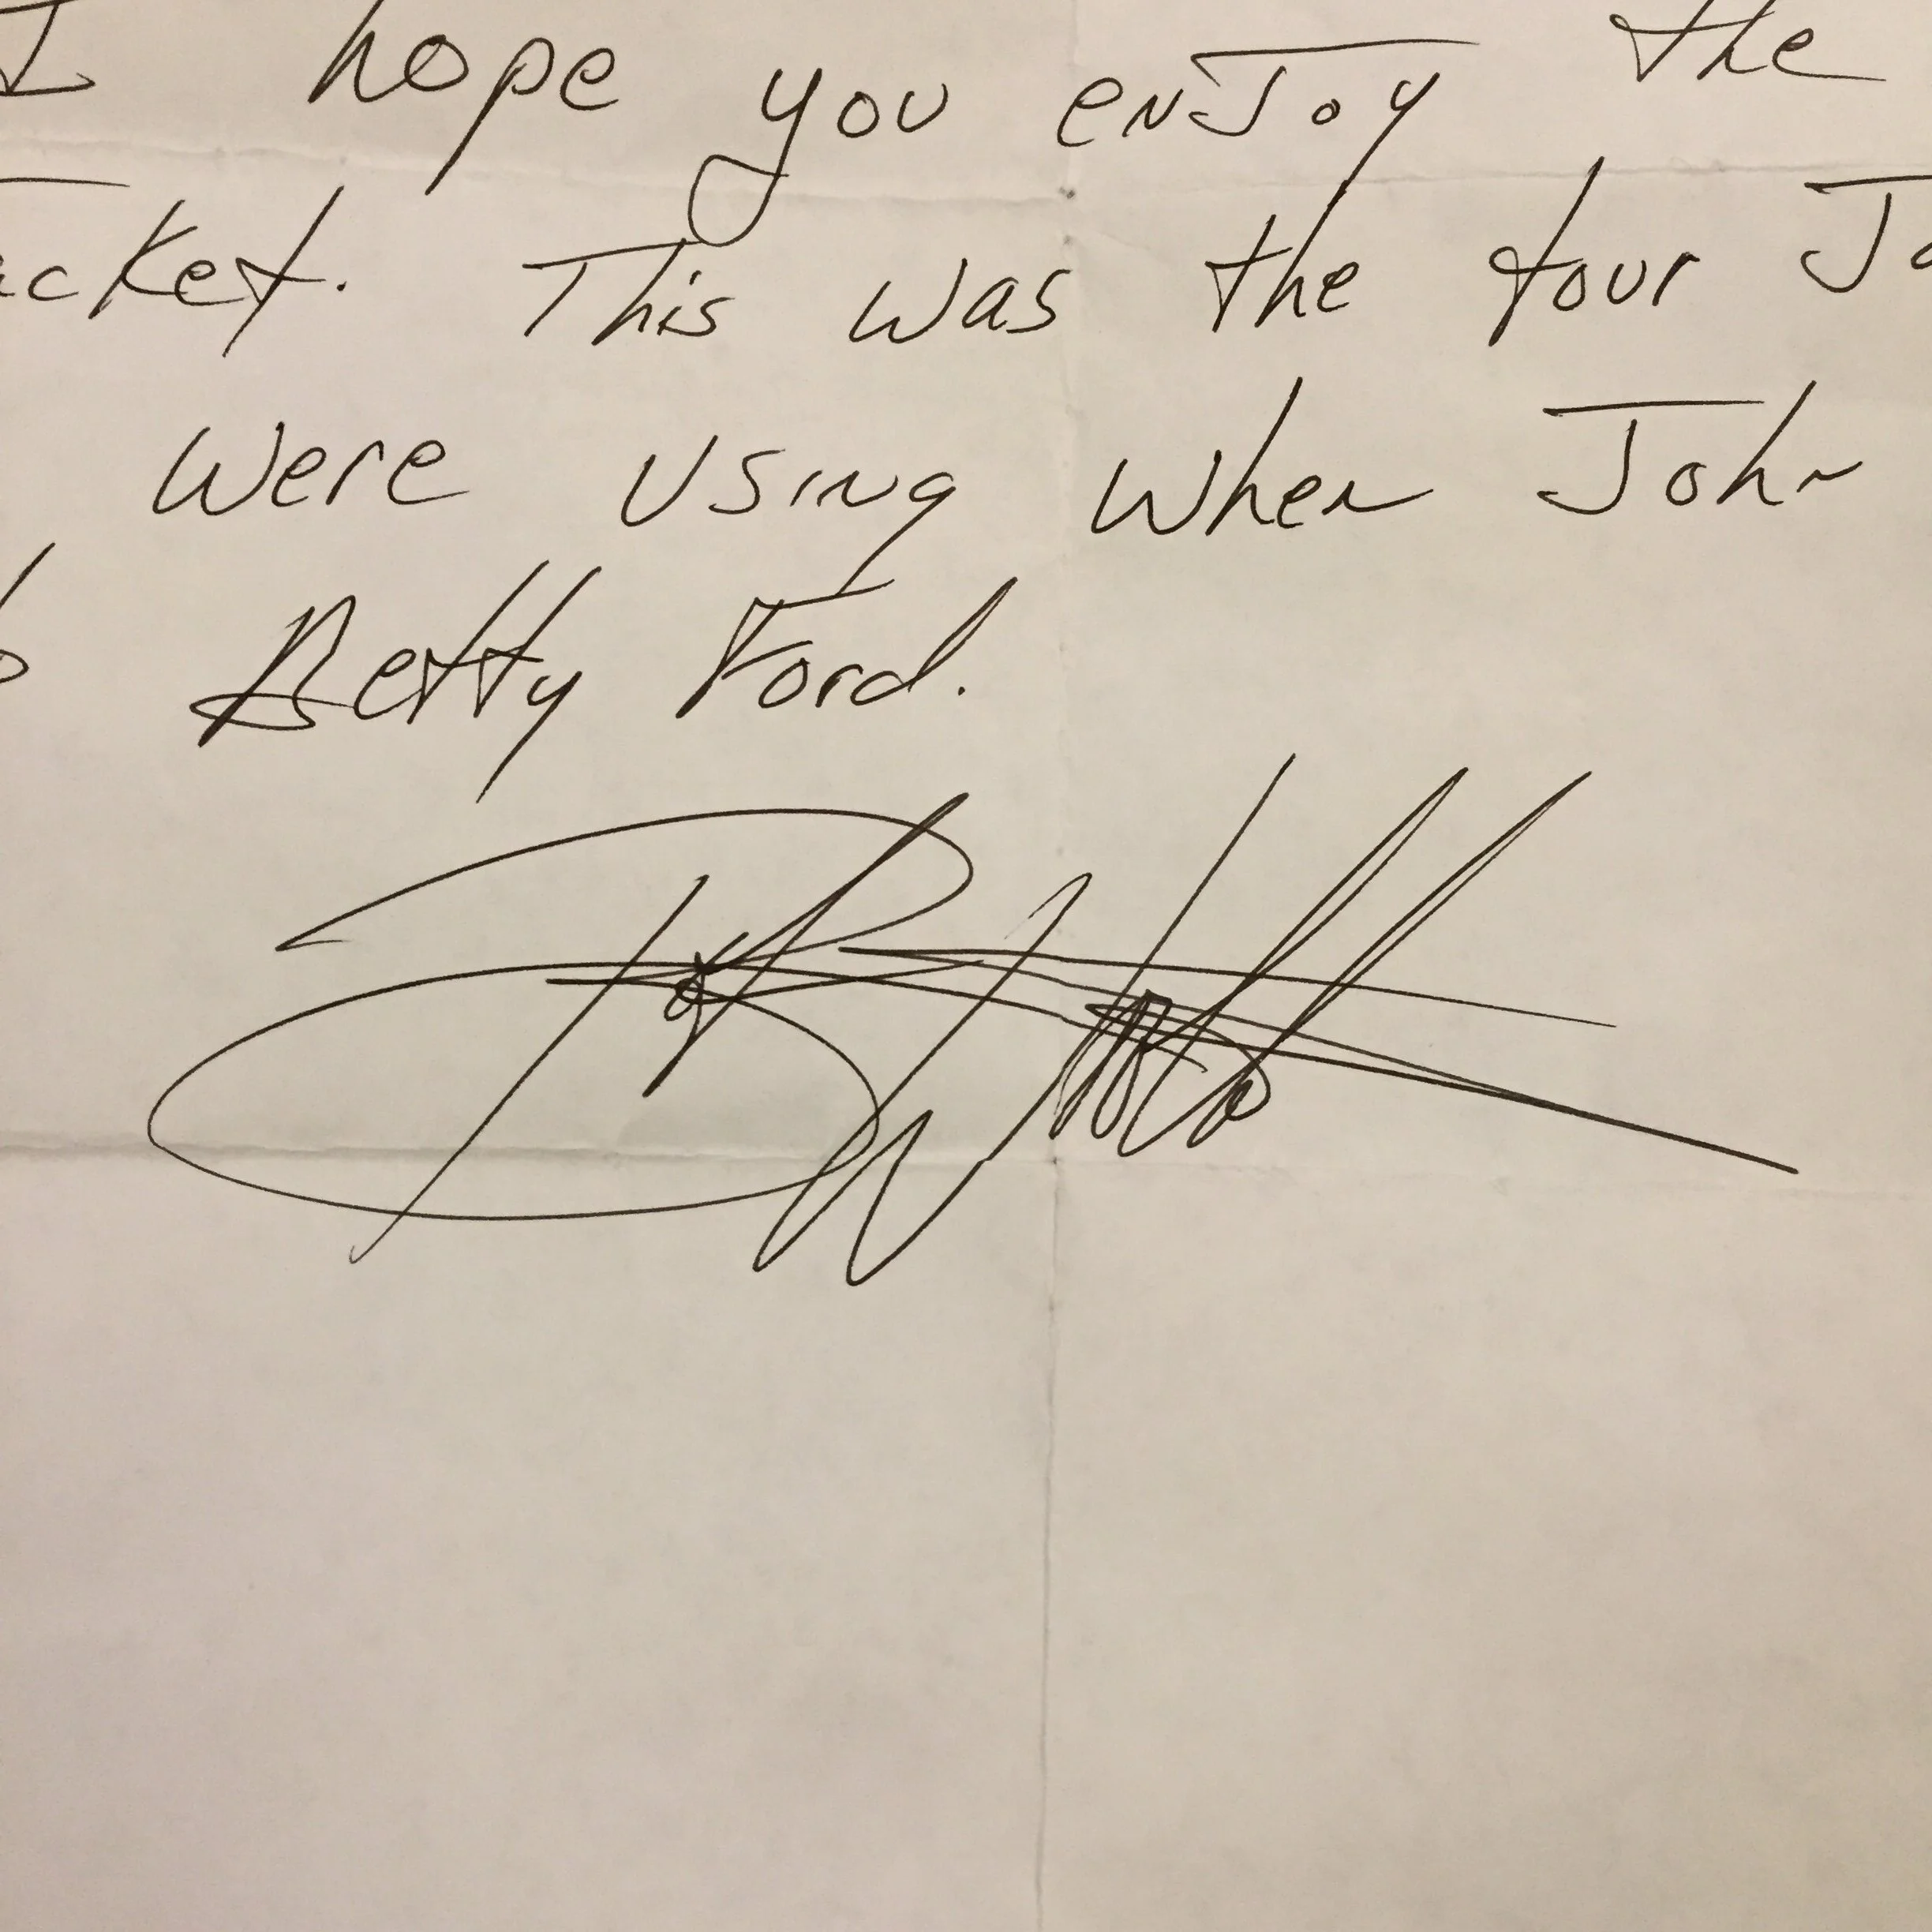 I hope you enJoy the
acket. This was the tour Ja
were using when John
Betty Ford.